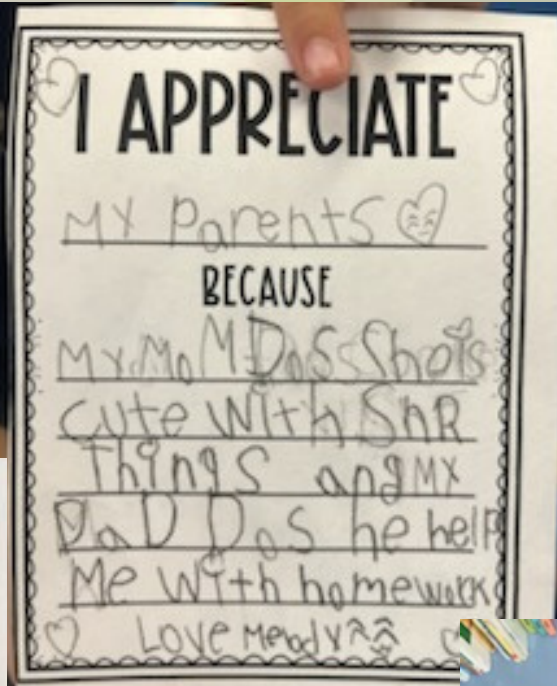 I APPRECIATE
My Parents
BECAUSE
My MoM Dos Shois
cute with ShR
things ang MY
DaD Dos he help
Me with homework
Love Melody